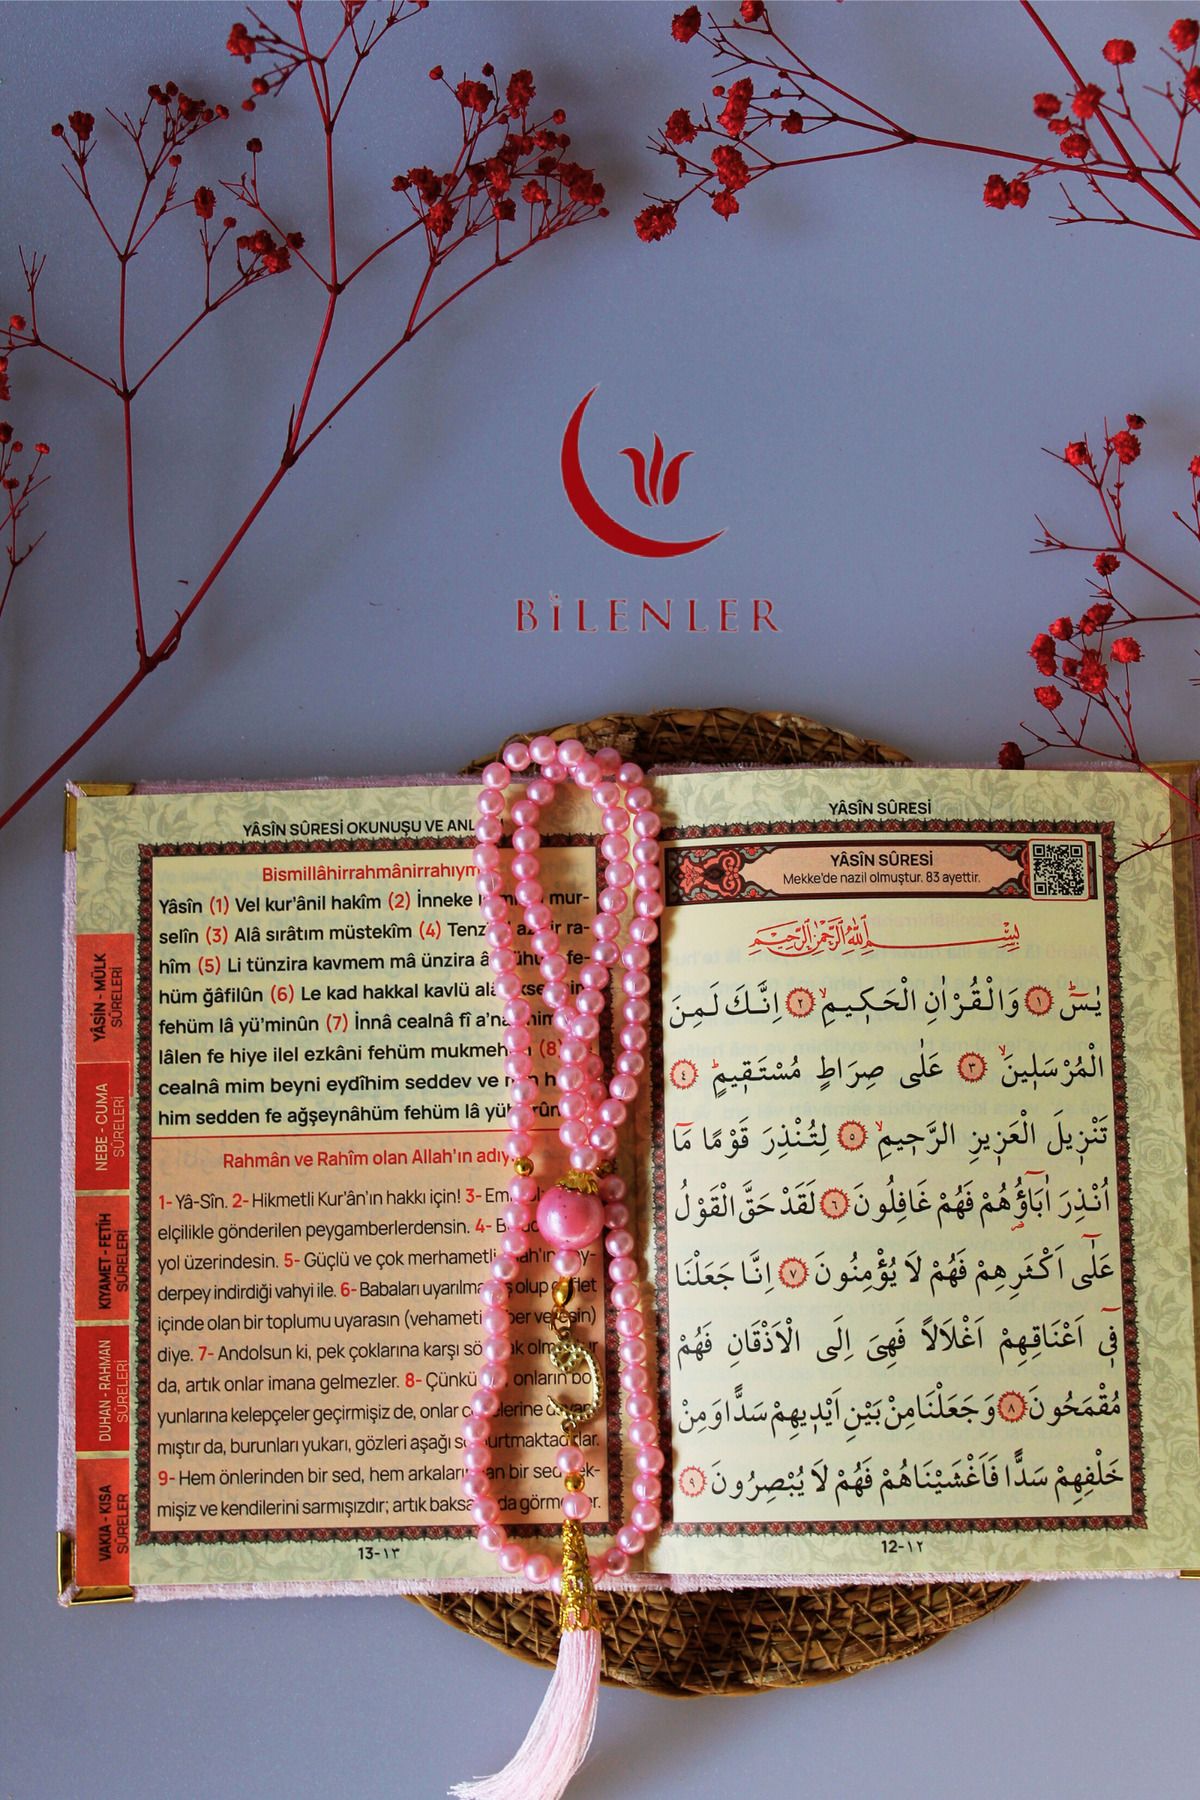 BİLENLER
YÂSÎN SÛRESİ
YÂSÎN SÛRESİ
Mekke'de nazil olmuştur. 83 ayettir.
بِسْمِ اللّٰهِ الرَّحْمٰنِ الرَّحِيمِ
يٰسٓ ۚ ﴿١﴾ وَالْقُرْاٰنِ الْحَكٖيمِۙ ﴿٢﴾ اِنَّكَ لَمِنَ
الْمُرْسَلٖينَۙ ﴿٣﴾ عَلٰى صِرَاطٍ مُسْتَقٖيمٍؕ ﴿٤﴾
تَنْزٖيلَ الْعَزٖيزِ الرَّحٖيمِۙ ﴿٥﴾ لِتُنْذِرَ قَوْمًا مَٓا
اُنْذِرَ اٰبَٓاؤُ۬هُمْ فَهُمْ غَافِلُونَ ﴿٦﴾ لَقَدْ حَقَّ الْقَوْلُ
عَلٰٓى اَكْثَرِهِمْ فَهُمْ لَا يُؤْمِنُونَ ﴿٧﴾ اِنَّا جَعَلْنَا
فٖٓي اَعْنَاقِهِمْ اَغْلَالًا فَهِيَ اِلَى الْاَذْقَانِ فَهُمْ
مُقْمَحُونَ ﴿٨﴾ وَجَعَلْنَا مِنْ بَيْنِ اَيْدٖيهِمْ سَدًّا وَمِنْ
خَلْفِهِمْ سَدًّا فَاَغْشَيْنَاهُمْ فَهُمْ لَا يُبْصِرُونَ ﴿٩﴾
12-١٢
YÂSÎN SÛRESİ OKUNUŞU VE
Bismillâhirrahmânirrahıym
Yâsîn (1) Vel kur'ânil hakîm (2) İnneke mur-
selîn (3) Alâ sırâtım müstekîm (4) ra-
hîm (5) Li tünzira kavmem mâ ünzira fe-
hüm ğâfilûn (6) Le kad hakkal kavlü
fehüm lâ yü'minûn (7) İnnâ cealnâ fî
lâlen fe hiye ilel ezkâni fehüm (8)
cealnâ mim beyni eydîhim seddev ve
him sedden fe ağşeynâhüm fehüm lâ
Rahmân ve Rahîm olan Allah'ın
1- Yâ-Sîn. 2- Hikmetli Kur'ân'ın hakkı için! 3-
elçilikle gönderilen peygamberlerdensin. 4-
yol üzerindesin. 5- Güçlü ve çok merhametli
derpey indirdiği vahyi ile. 6- Babaları olup
içinde olan bir toplumu uyarasın (vehameti
diye. 7- Andolsun ki, pek çoklarına karşı
da, artık onlar imana gelmezler. 8- Çünkü onların bo
yunlarına kelepçeler geçirmişiz de, onlar
mıştır da, burunları yukarı, gözleri aşağı
9- Hem önlerinden bir sed, hem bir sed
mişiz ve kendilerini sarmışızdır; artık
13-١٣
YÂSİN - MÜLK
SÛRELERİ
NEBE - CUMA
SÛRELERİ
KIYAMET - FETİH
SÛRELERİ
DUHAN - RAHMAN
SÛRELERİ
VAKIA - KISA
SÛRELER